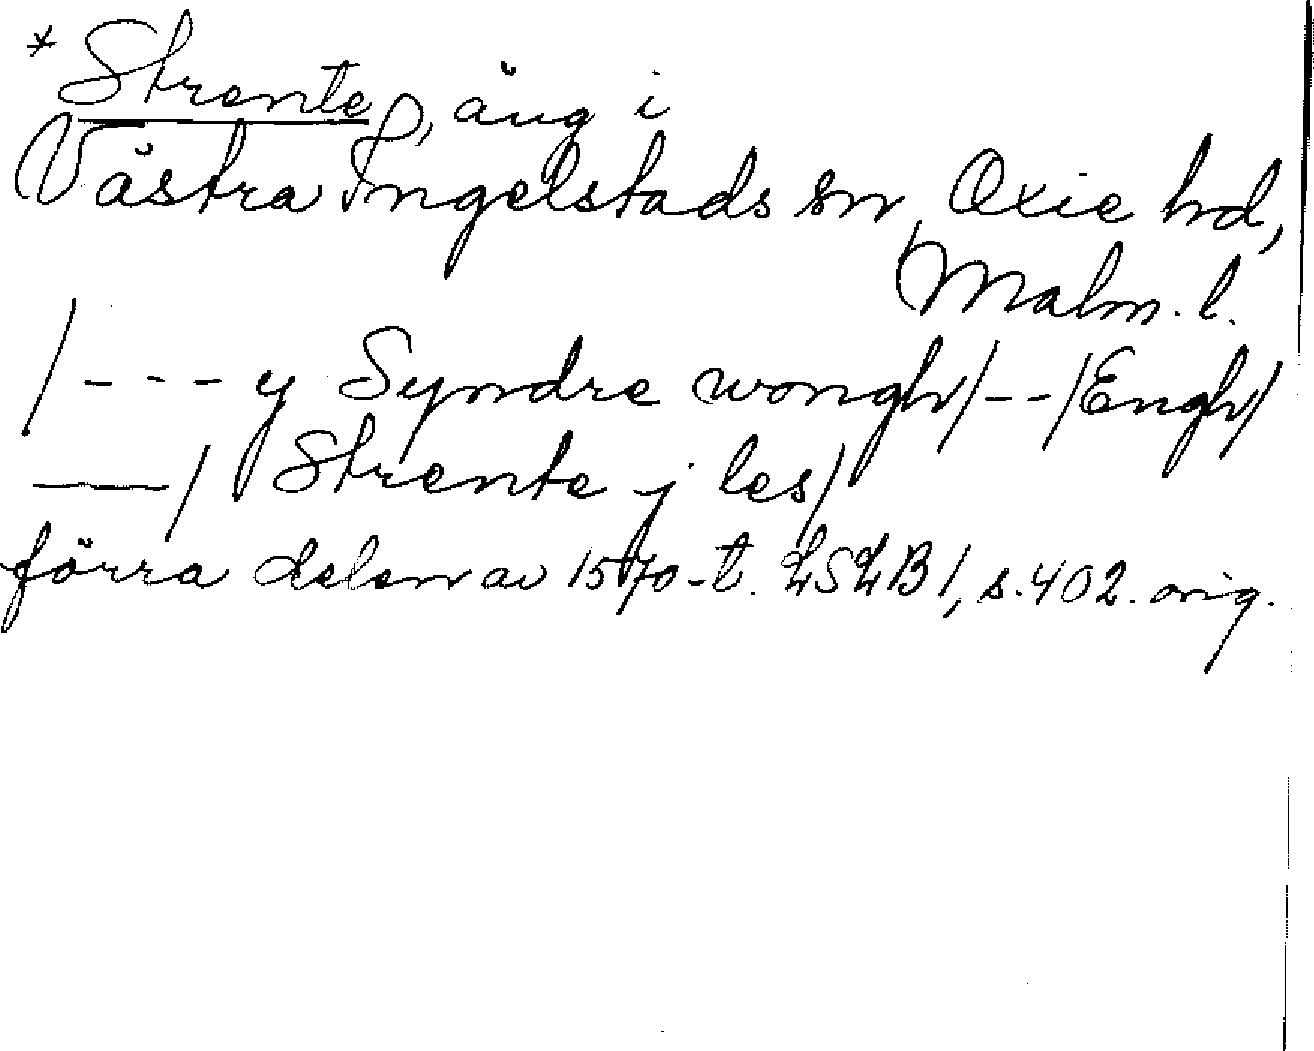 * Strente, äng i
Västra Ingelstads sn, Oxie hd,
Malm. l.
/--- y Syndre wongh/--/Engh/
——/ Strente j les/
förra delen av 1570-t. LSLB 1, s. 402. orig.